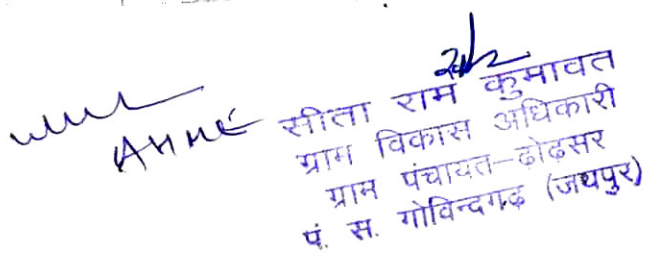 सीता राम कुमावत
ग्राम विकास अधिकारी
ग्राम पंचायत-ढोढसर
पं. स. गोविन्दगढ़ (जयपुर)